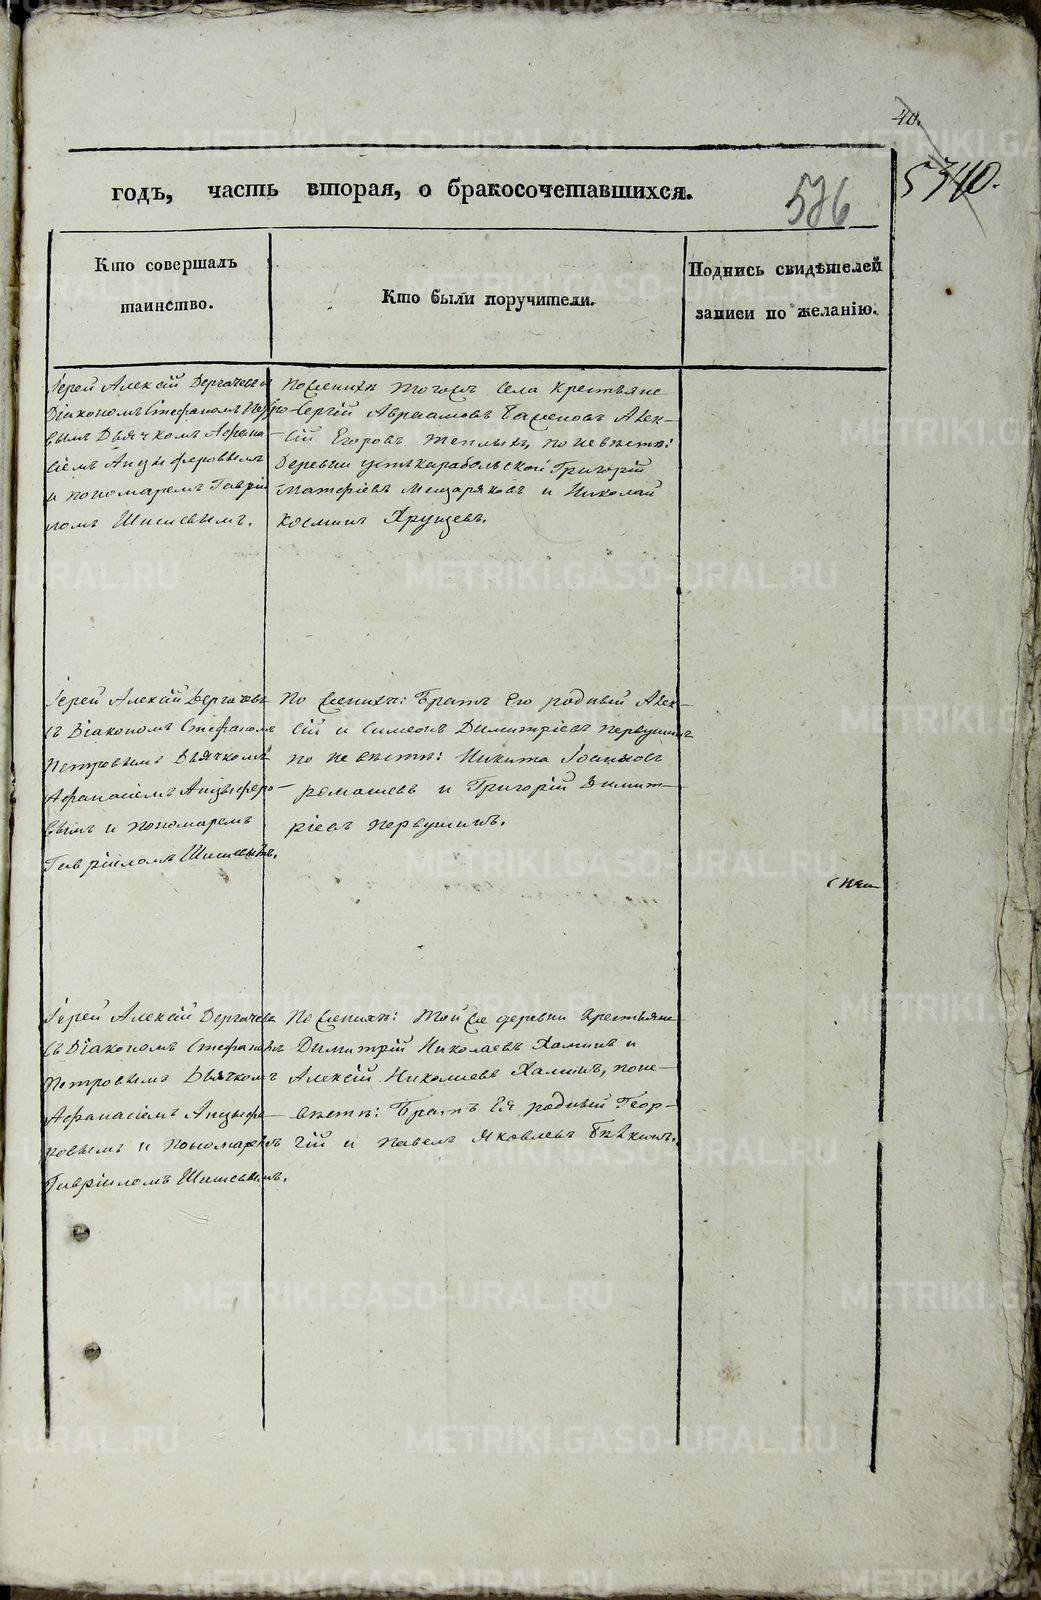 40.
5340.
годъ, часть вторая, о бракосочетавшихся.
576
Кто совершалъ
таинство.
Кто были поручители.
Подпись свидѣтелей
записи по желанію.
Іерей Алексій Дергачевъ и
Діакономъ Стефаномъ Петро-
вымъ Дьячкомъ Афана
сіемъ Анцыферовымъ
и пономаремъ Гаврі
ломъ Шишевымъ.
По женихѣ тогожъ села крестьяне
Сергій Авраамовъ Алек-
сій Егоровъ Теплыхъ, по невѣстѣ:
Деревни устькарабольской Григорій
Матфіевъ Мещаряковъ и Николай
Космин Хрущевъ.
Іерей Алексій Дергачевъ
съ Діакономъ Стефаномъ
Петровымъ Дьячкомъ
Афанасіемъ Анцыферо-
вымъ и пономаремъ
Гавріиломъ Шишевымъ.
По женихѣ: Братъ Его родный Алек-
сій и Симеонъ Димитріевъ Первушинъ
по невѣстѣ: Никита Іоанновъ
Ромашевъ и Григорій Димит-
ріевъ Первушинъ.
Іерей Алексій Дергачевъ
съ Діакономъ Стефаномъ
Петровымъ Дьячкомъ
Афанасіемъ Анцыфе-
ровымъ и пономаремъ
Гавріиломъ Шишевымъ.
По женихѣ: той же деревни крестьяне
Димитрій Николаевъ Халинъ и
Алексій Николаевъ Халинъ, поне-
вѣстѣ: Братъ Ея родный Геор-
гій и Павелъ Яковлевъ Бѣкинъ.
METRIKI.GASO-URAL.RU